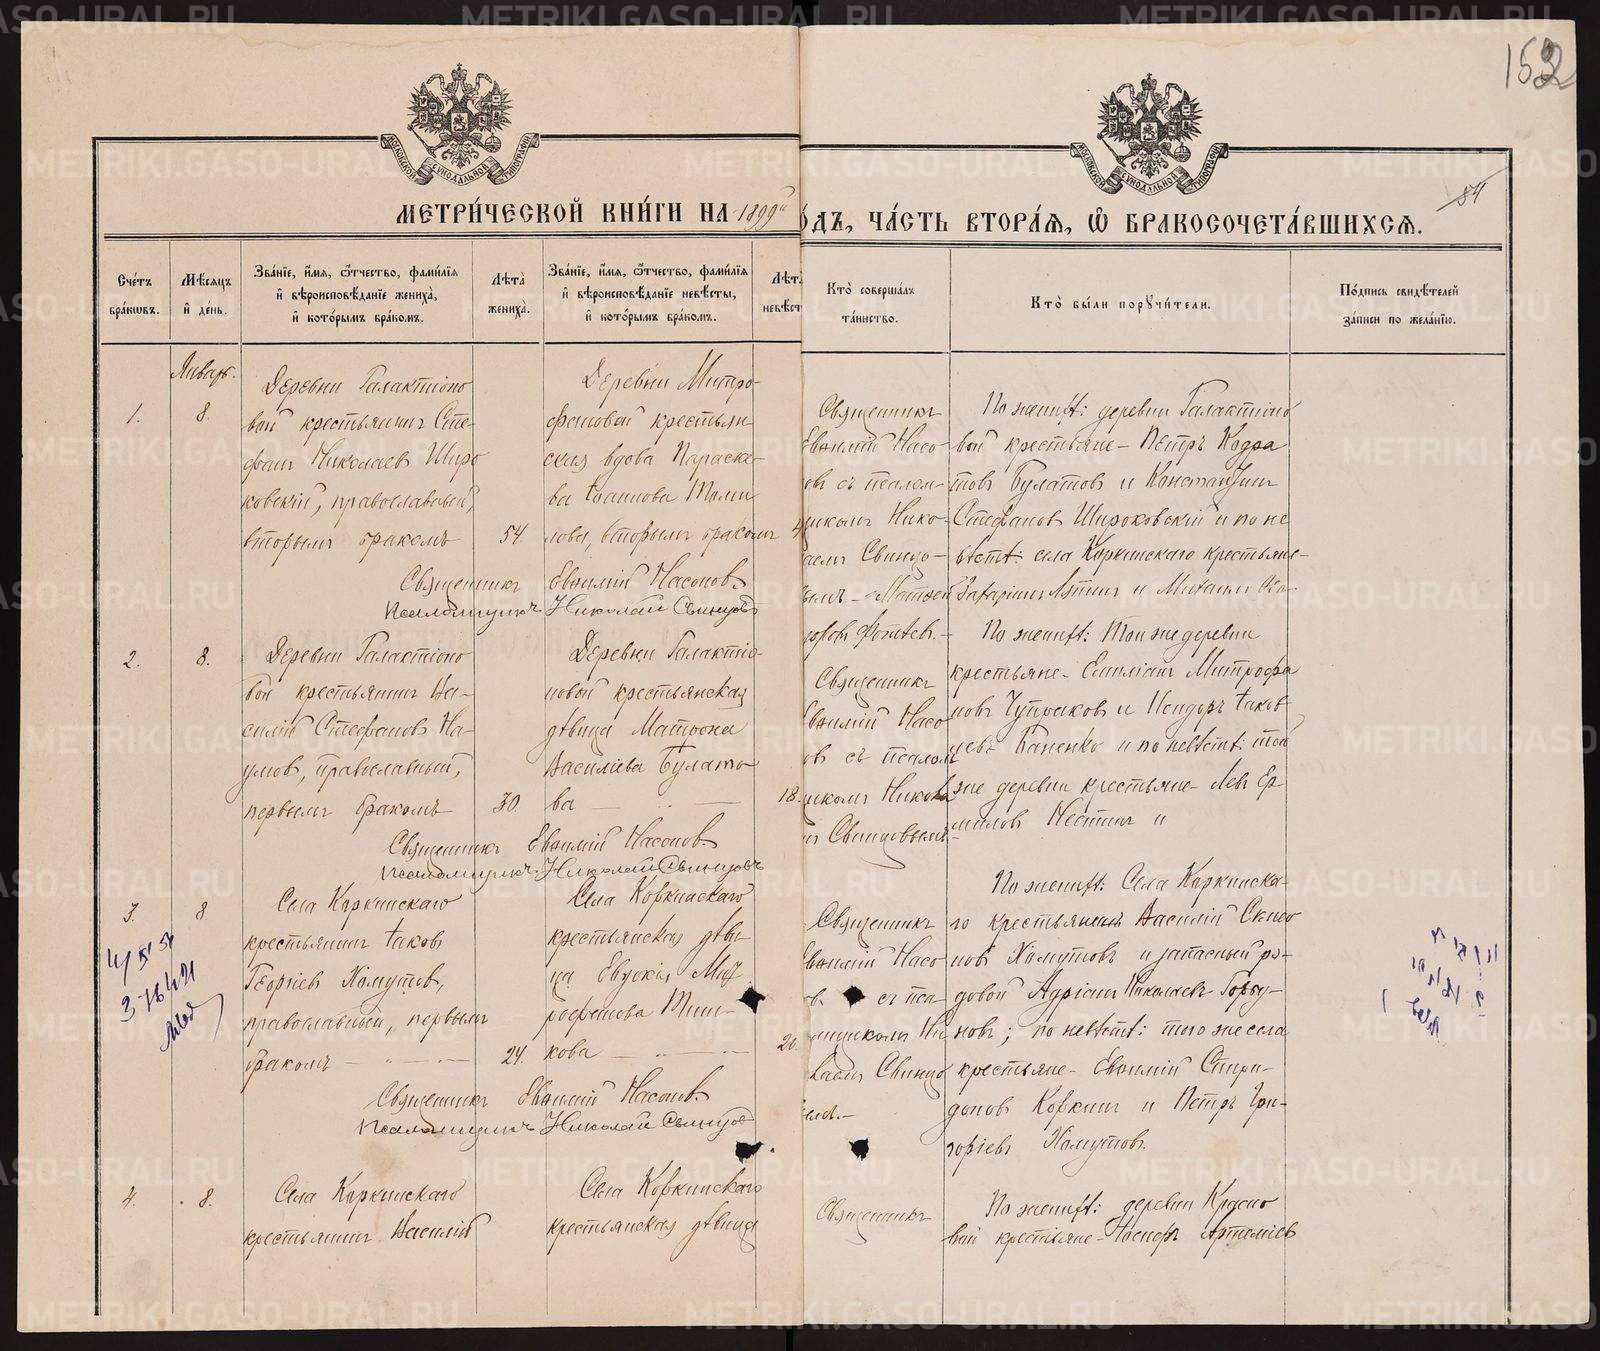 152
84
МОСКОВСКОЙ СУНОДАЛЬНОЙ ТИПОГРАФІИ
МОСКОВСКОЙ СУНОДАЛЬНОЙ ТИПОГРАФІИ
МЕТРИ́ЧЕСКОЙ КНИ́ГИ НА 1899й
ОДЪ, ЧА́СТЬ ВТОРА́Я, Ѽ БРАКОСОЧЕТА́ВШИХСЯ.
Сче́тъ бра́кѡвъ.
Мѣ́сяцъ и҆ де́нь.
Зва́нїе, и҆́мя, ѻ҆́тчество, фами́лїя
и҆ вѣроисповѣ́данїе жениха̀,
и҆ кото́рымъ бра́комъ.
Лѣ́та̀ жениха̀.
Зва́нїе, и҆́мя, ѻ҆́тчество, фами́лїя
и҆ вѣроисповѣ́данїе невѣ́сты,
и҆ кото́рымъ бра́комъ.
Лѣта̀ невѣст
Кто̀ соверша́лъ
та́инство.
Кто̀ бы́ли порꙋчи́тели.
По́дпись свидѣ́телей
за́писи по жела́нїю.
Январь.
1.
8
Деревни Галактіоно
вой крестьянинъ Сте
фанъ Николаевъ Широ
ковскій, православный,
вторымъ бракомъ
54
Деревни Митро-
фановой крестьян
ская вдова Параске-
ва Іоаннова Томи
лова, вторымъ бракомъ
Священникъ
Евѳимій Насо-
овъ съ псалом
щикомъ Нико-
аемъ Свинцо-
вымъ
По женихѣ: деревни Галактіоно
вой крестьяне - Петръ Кодра
товъ Булатовъ и Константинъ
Стефановъ Широковскій и по не
вѣстѣ: села Коркинскаго крестьяне-
Матвей Захаріинъ Лѣтинъ и Михаилъ
Священникъ Евѳимій Насоновъ
Псаломщикъ Николай Свинцовъ
2.
8.
Деревни Галактіоно
вой крестьянинъ Ва-
силій Стефановъ На-
умовъ, православный,
первымъ бракомъ
30
Деревни Галактіо-
новой крестьянская
дѣвица Матрона
Василіева Булато
ва
18.
Священникъ
Евѳимій Насо
овъ съ псалом
щикомъ Никола
Свинцовымъ
По женихѣ: Той же деревни
крестьяне - Емиліанъ Митрофа
новъ Чупраковъ и Исидоръ Іаков
левъ Баненко и по невѣстѣ: той
же деревни крестьяне - Левъ Ер
миловъ и
Священникъ Евѳимій Насоновъ
Псаломщикъ Николай Свинцовъ
3.
8
Села Коркинскаго
крестьянинъ Іаковъ
Георгіевъ Хомутовъ,
православный, первымъ
бракомъ
24.
Села Коркинскаго
крестьянская дѣви
ца Евдокія Мит
рофанова Тит-
кова
20.
Священникъ
Евѳимій Насо
овъ съ пса
ломщикомъ Ни
лаемъ Свинцо
вымъ.-
По женихѣ: Села Коркинска-
го крестьянинъ Василій
новъ Хомутовъ и запасный ря-
довой Адріанъ Николаевъ Горбу-
новъ; по невѣстѣ: того же села
крестьяне - Евѳимій Спири-
доновъ Коркинъ и Петръ Гри-
горіевъ Хомутовъ.
Священникъ Евѳимій Насоновъ
Псаломщикъ Николай Свинцовъ
4.
8.
Села Коркинскаго
крестьянинъ Василій
Села Коркинскаго
крестьянская дѣвица
Священникъ
По женихѣ: деревни Красно
вой крестьяне - Іосифъ Артеміевъ
METRIKI.GASO-URAL.RU